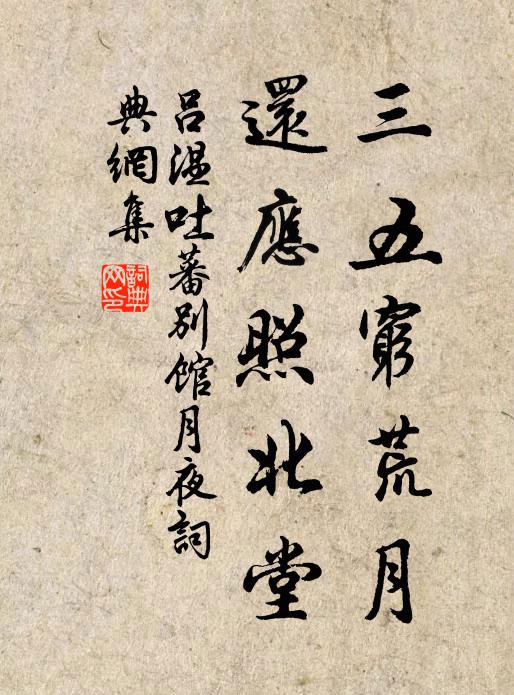 三五窮荒月
還應照北堂
呂溫吐蕃別館月夜詞
典網集
詞典
網印